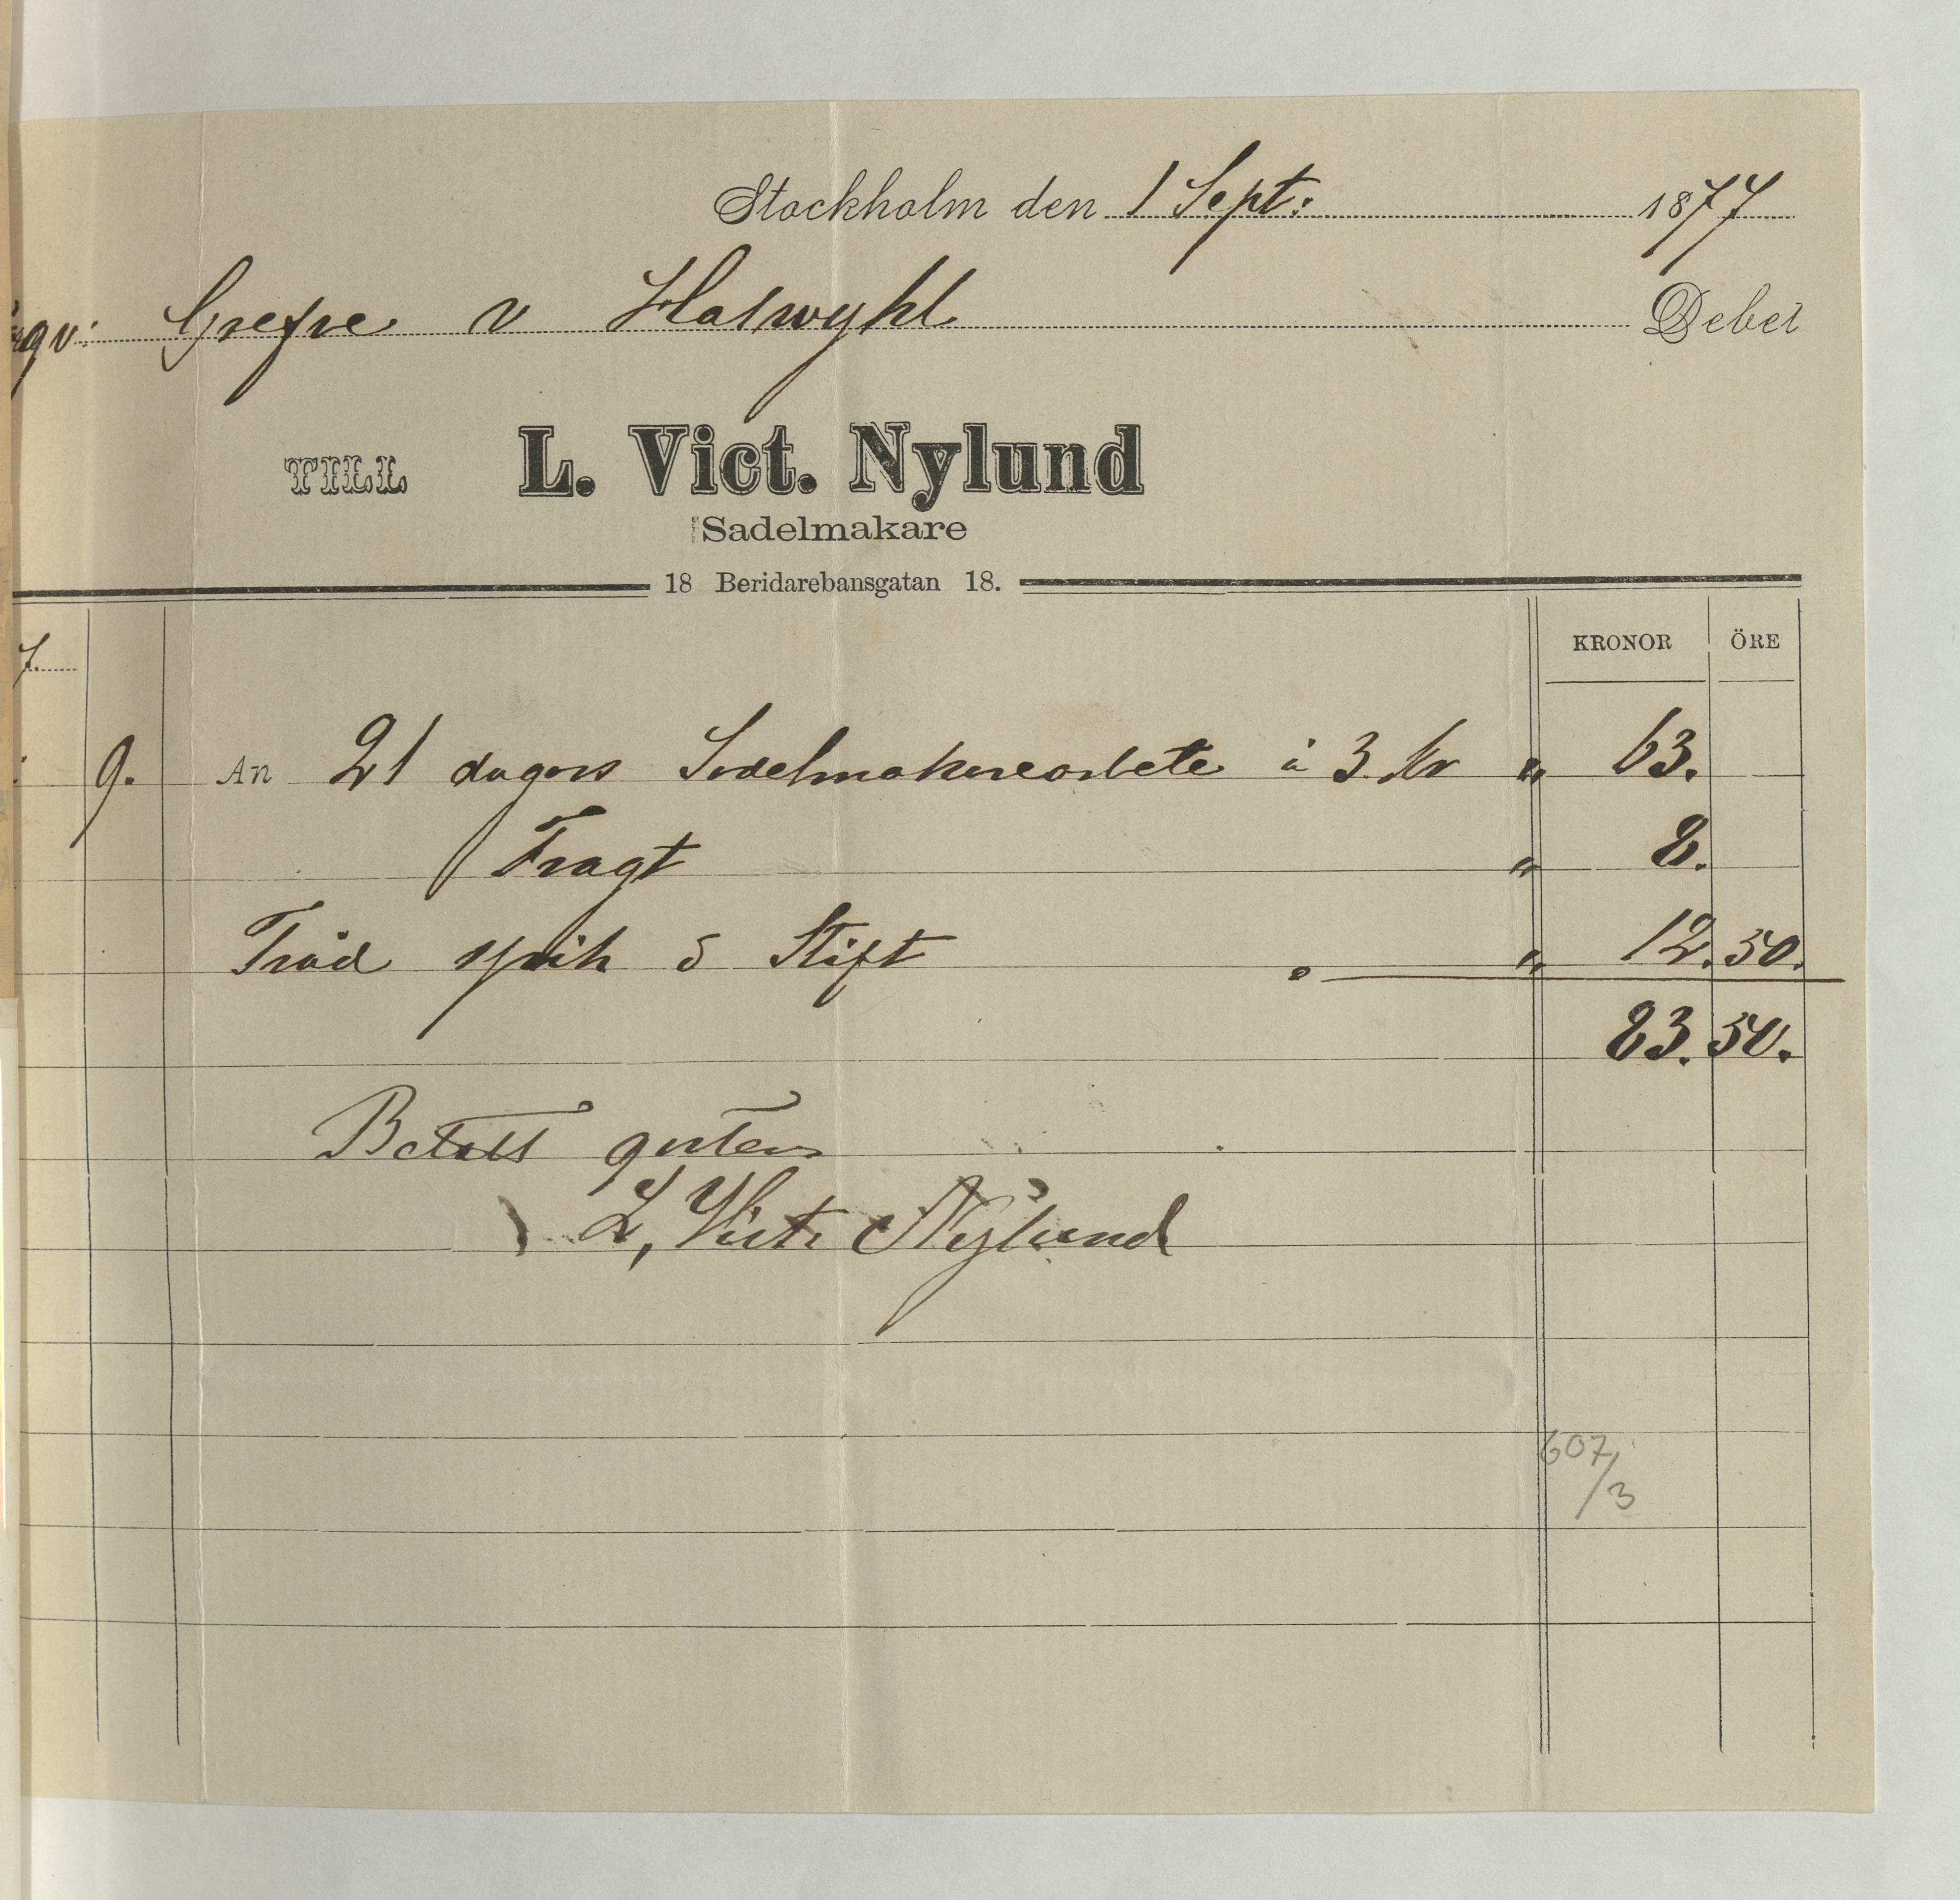 Stockholm den 1 Sept: 1877
Grefve v Halwyhl Debet
TILL L. Vict. Nylund
Sadelmakare
18 Beridarebansgatan 18.
7.
KRONOR ÖRE
9. An 21 dagars Sadelmakarearbete à 3 kr " 63.
Fragt " 8.
Tråd spik & Stift " 12. 50.
83. 50.
Betalt qvitteras
L, Vict. Nylund
607/3